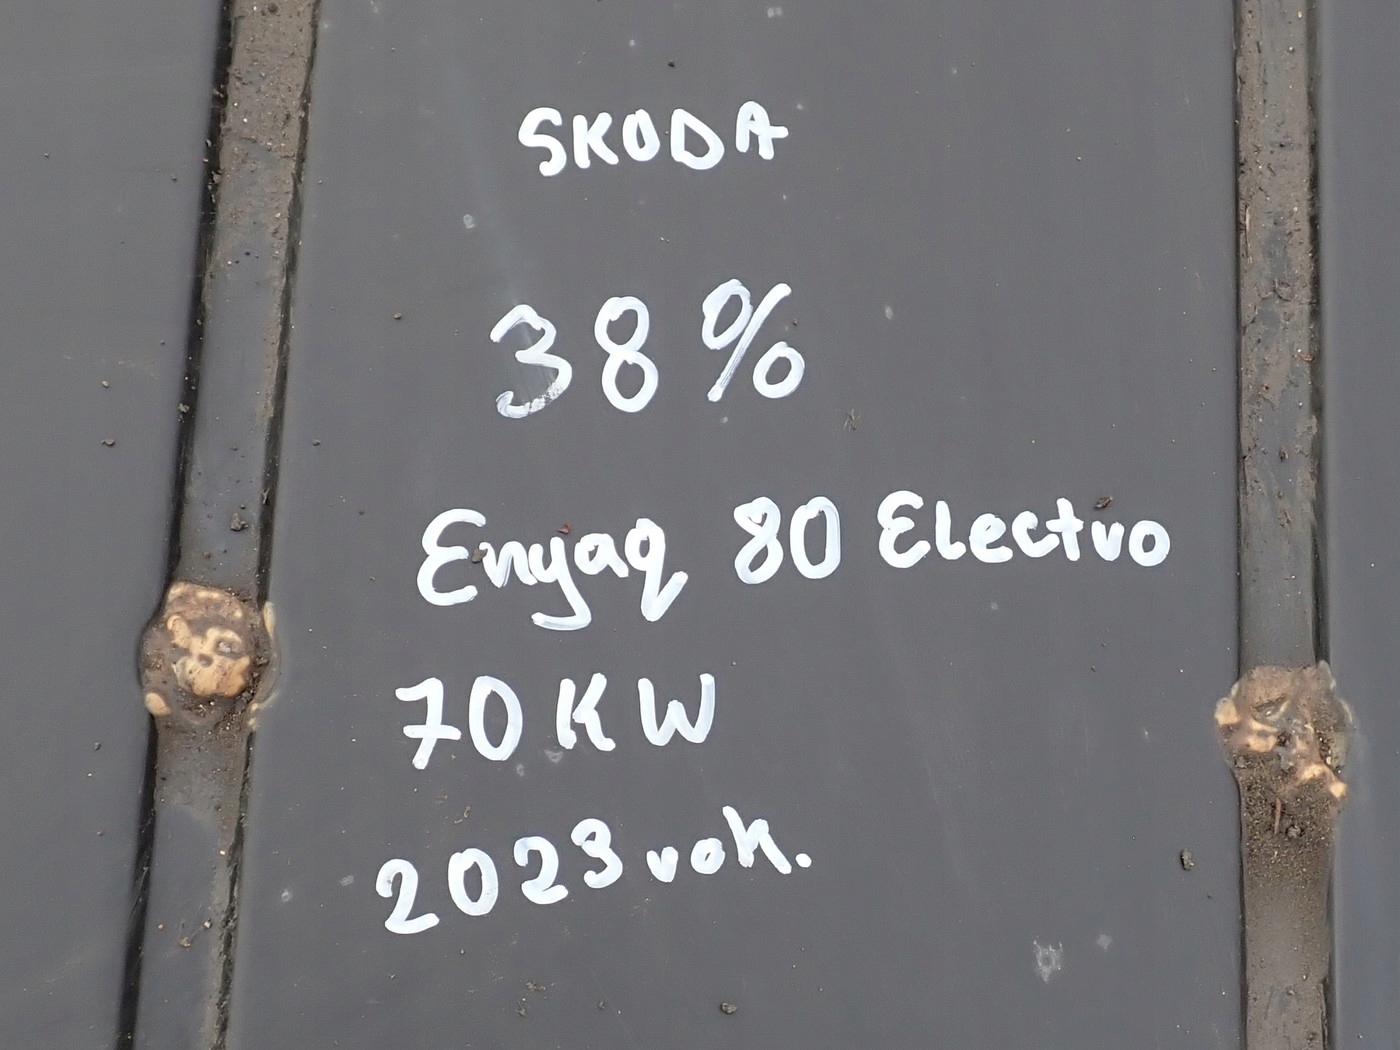 SKODA
38%
Enyaq 80 Electro
70 KW
2023 rok.